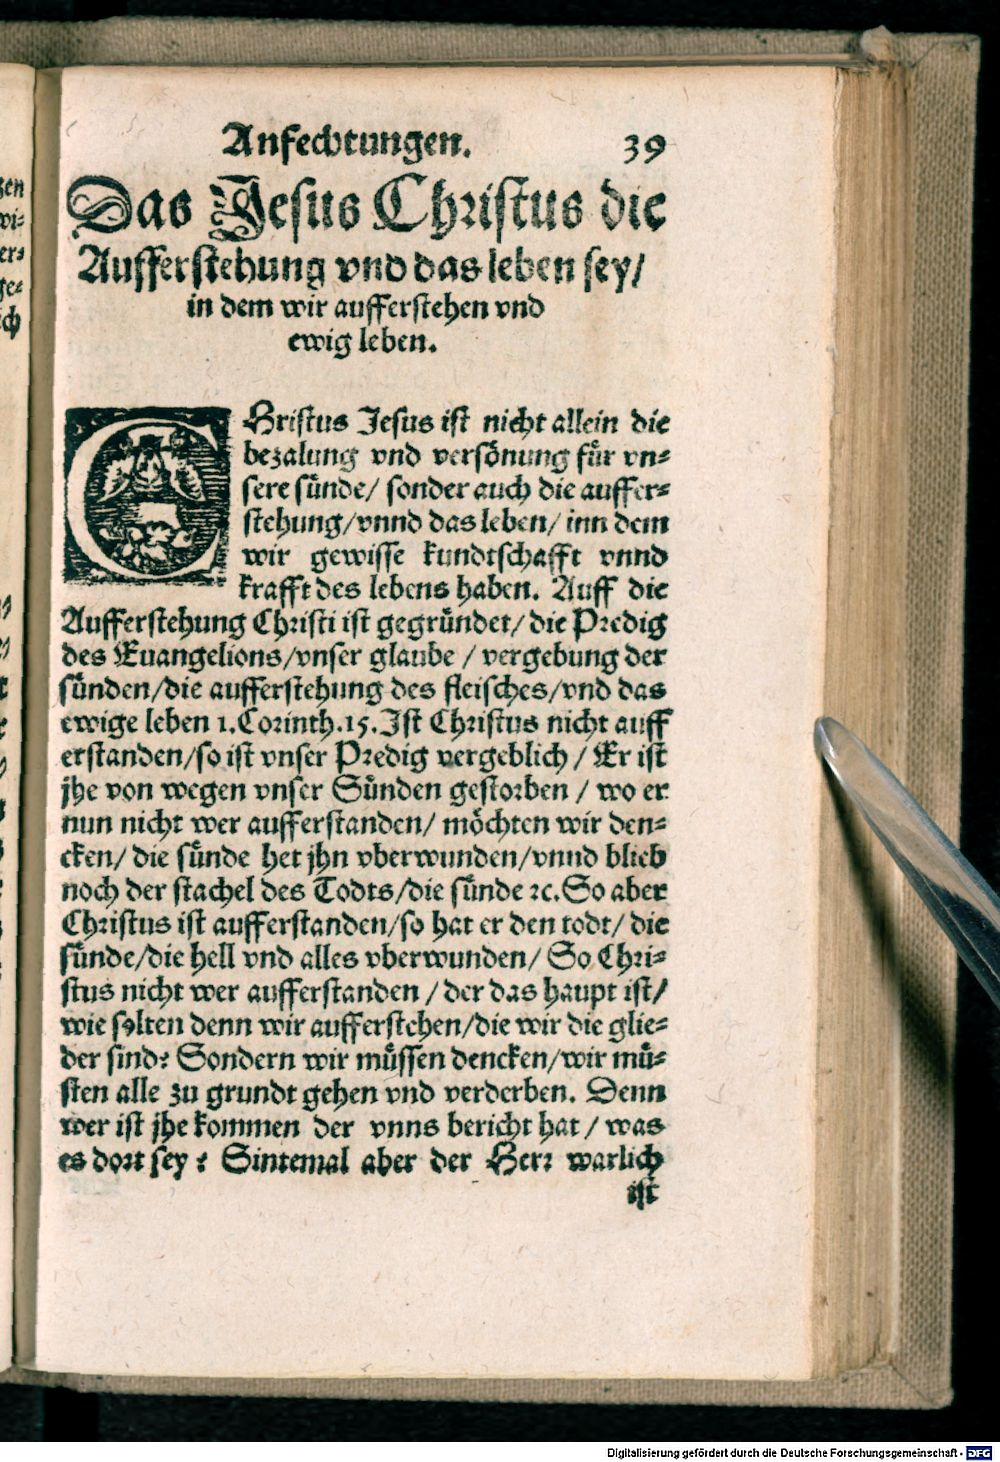 Anfechtungen. 39
Das Jesus Christus die
Aufferstehung vnd das leben sey/
in dem wir aufferstehen vnd
ewig leben.
CHristus Jesus ist nicht allein die
bezalung vnd versönung für vn⸗
sere sünde/ sonder auch die auffer⸗
stehung/vnnd das leben/ inn dem
wir gewisse kundtschafft vnnd
krafft des lebens haben. Auff die
Aufferstehung Christi ist gegründet/ die Predig
des Euangelions/vnser glaube / vergebung der
sünden/die aufferstehung des fleisches/vnd das
ewige leben 1.Corinth.15.Ist Christus nicht auff
erstanden/so ist vnser Predig vergeblich / Er ist
jhe von wegen vnser Sünden gestorben / wo er
nun nicht wer aufferstanden/ möchten wir den⸗
cken/ die sünde het jhn vberwunden/vnnd blieb
noch der stachel des Todts/die sünde ꝛc.So aber
Christus ist aufferstanden/so hat er den todt/ die
sünde/die hell vnd alles vberwunden/ So Chri⸗
stus nicht wer aufferstanden / der das haupt ist/
wie solten denn wir aufferstehen/die wir die glie⸗
der sind? Sondern wir müssen dencken/wir mü⸗
sten alle zu grundt gehen vnd verderben. Denn
wer ist jhe kommen der vnns bericht hat / was
es dort sey ? Sintemal aber der Herr warlich
ist
zen
wi⸗
er⸗
ge⸗
ich
Digitalisierung gefördert durch die Deutsche Forschungsgemeinschaft - DFG